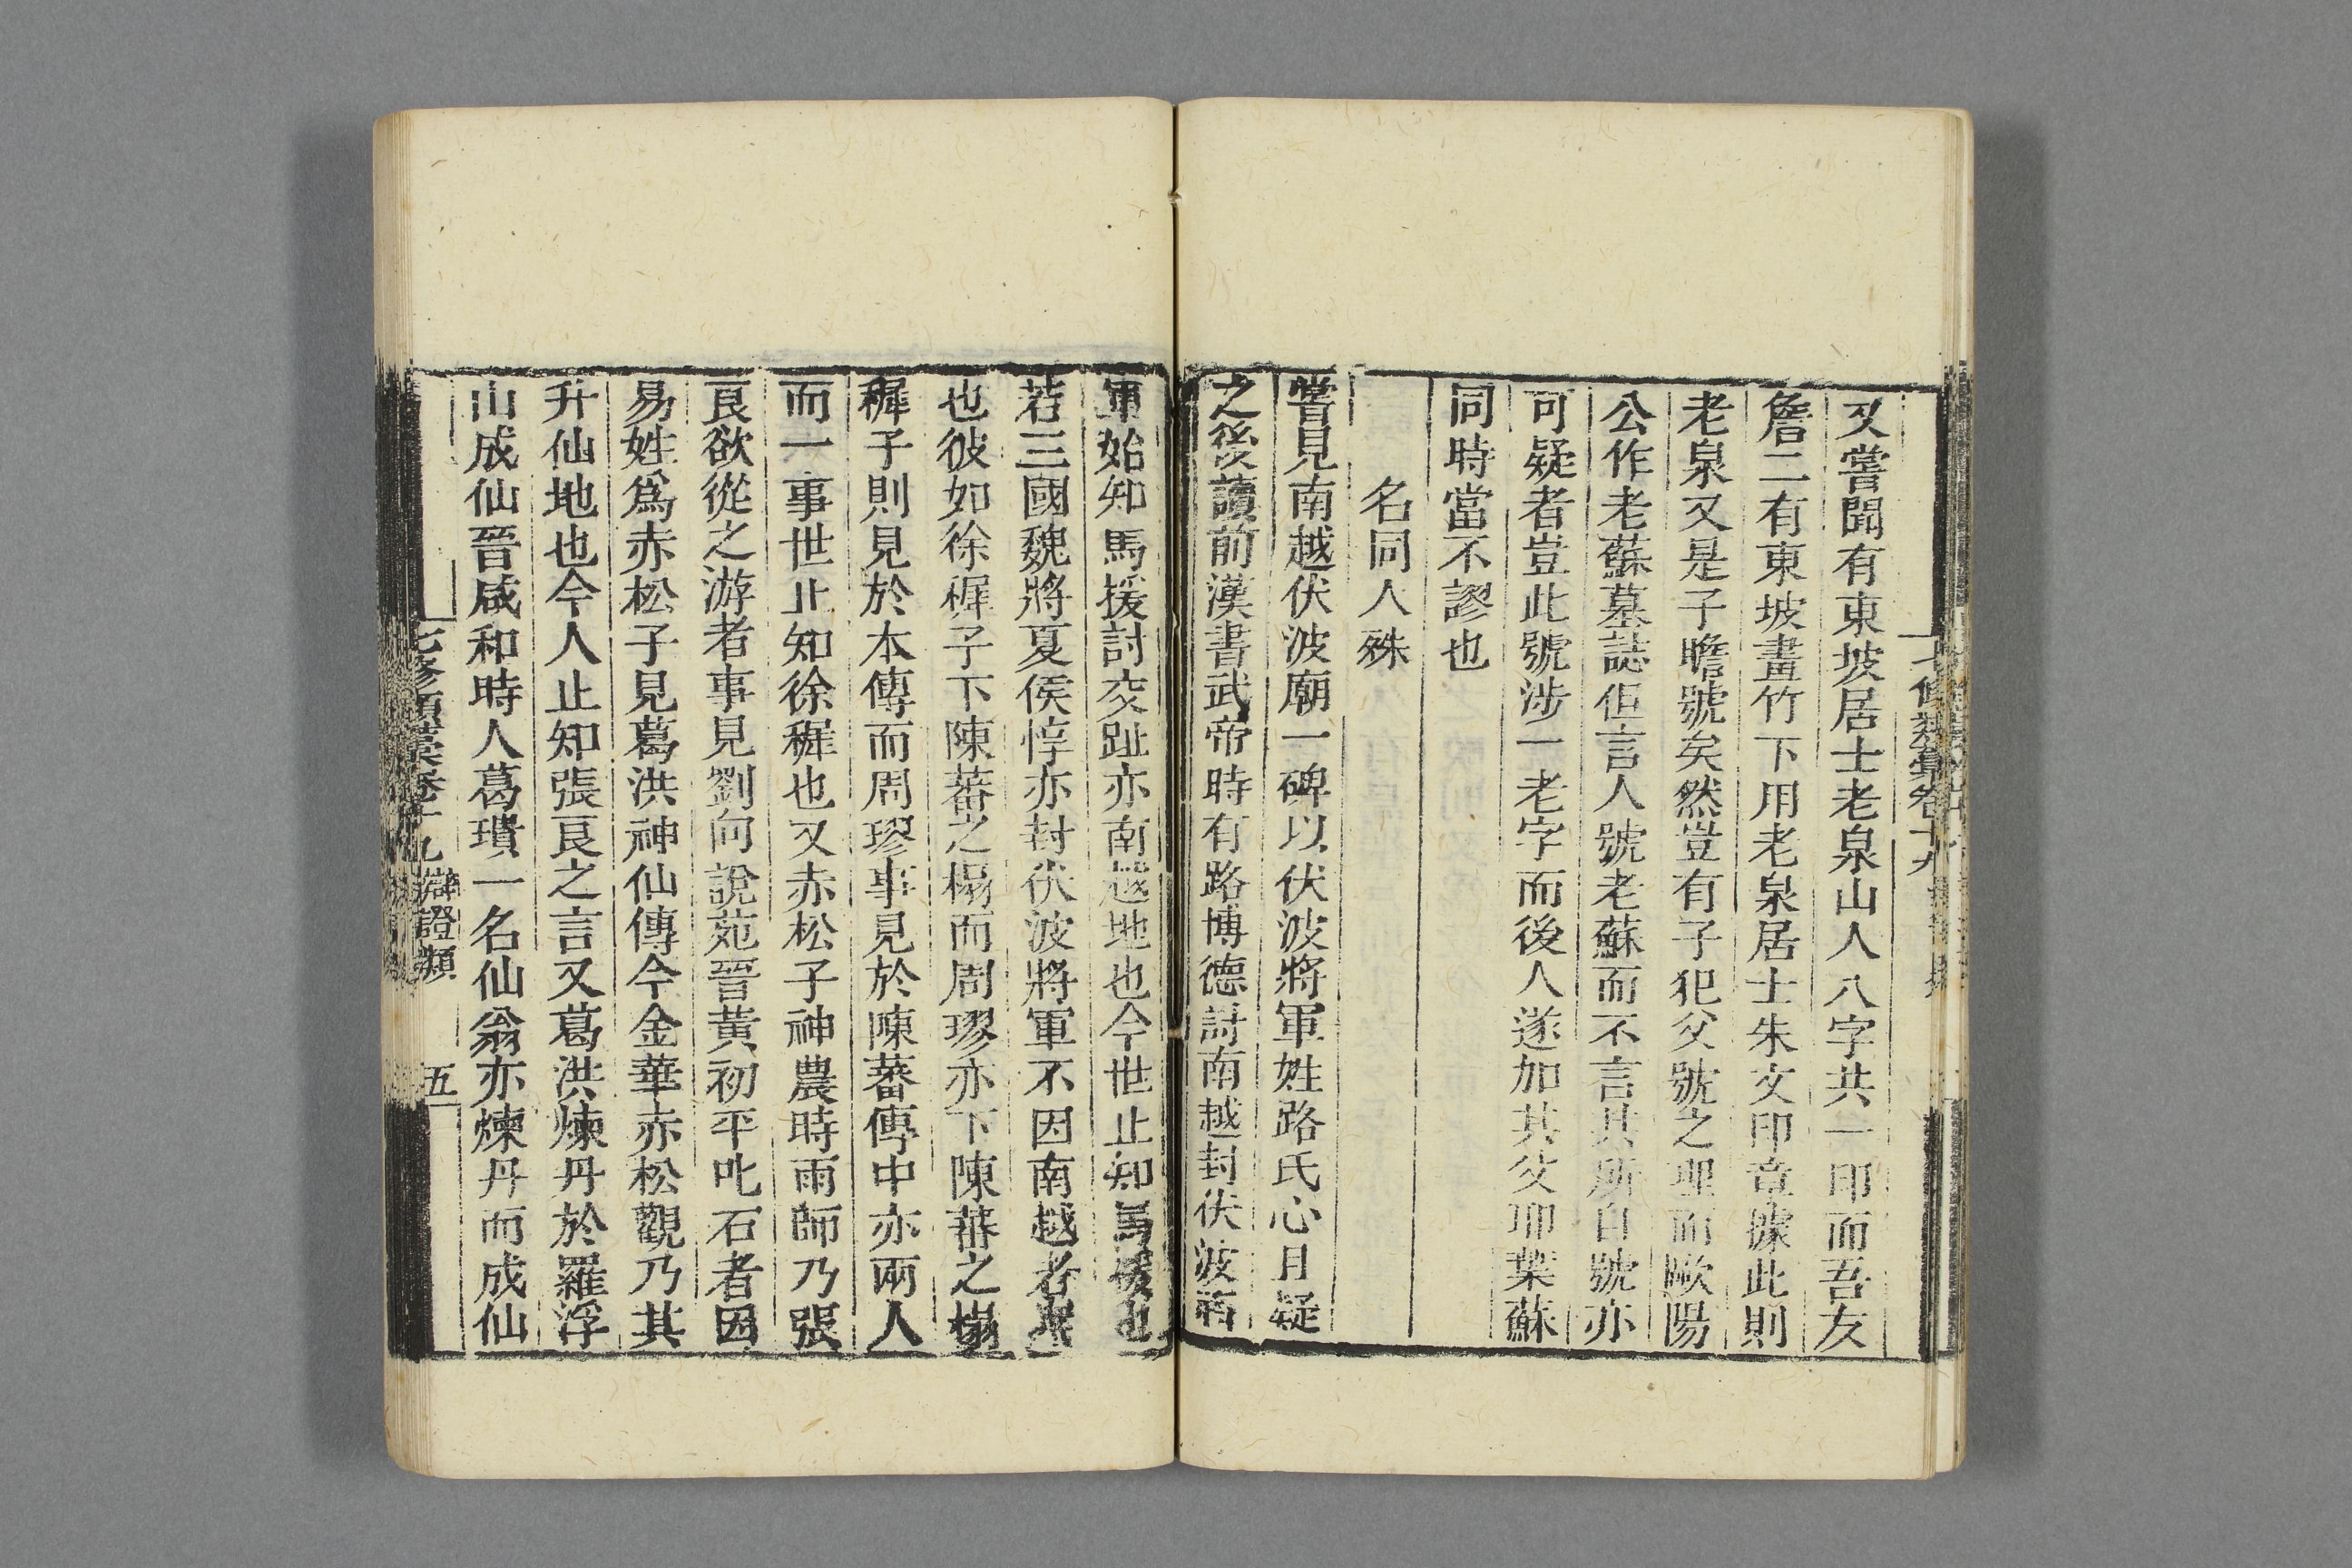 七修類藁卷十九
又嘗聞有東坡居士老泉山人八字共一印而吾友
詹二有東坡畫竹下用老泉居士朱文印章據此則
老泉又是子瞻號矣然豈有子犯父號之理而歐陽
公作老蘇墓誌但言人號老蘇而不言其所自號亦
可疑者豈此號涉一老字而後人遂加其父耶葉蘇
同時當不謬也
名同人殊
嘗見南越伏波廟一碑以伏波將軍姓路氏心且疑
之後讀前漢書武帝時有路博德討南越封伏波將
軍始知馬援討交趾亦南越地也今世止知馬援也
若三國魏將夏侯惇亦封伏波將軍不因南越者
也彼如徐穉子下陳蕃之榻而周璆亦下陳蕃之榻
穉子則見於本傳而周璆事見於陳蕃傳中亦兩人
而一事世止知徐穉也又赤松子神農時雨師乃張
良欲從之游者事見劉向說苑晉黃初平叱石者因
易姓爲赤松子見葛洪神仙傳今金華赤松觀乃其
升仙地也今人止知張良之言又葛洪煉丹於羅浮
山成仙晉咸和時人葛璝一名仙翁亦煉丹而成仙
七修類藁卷十九 辯證類 五